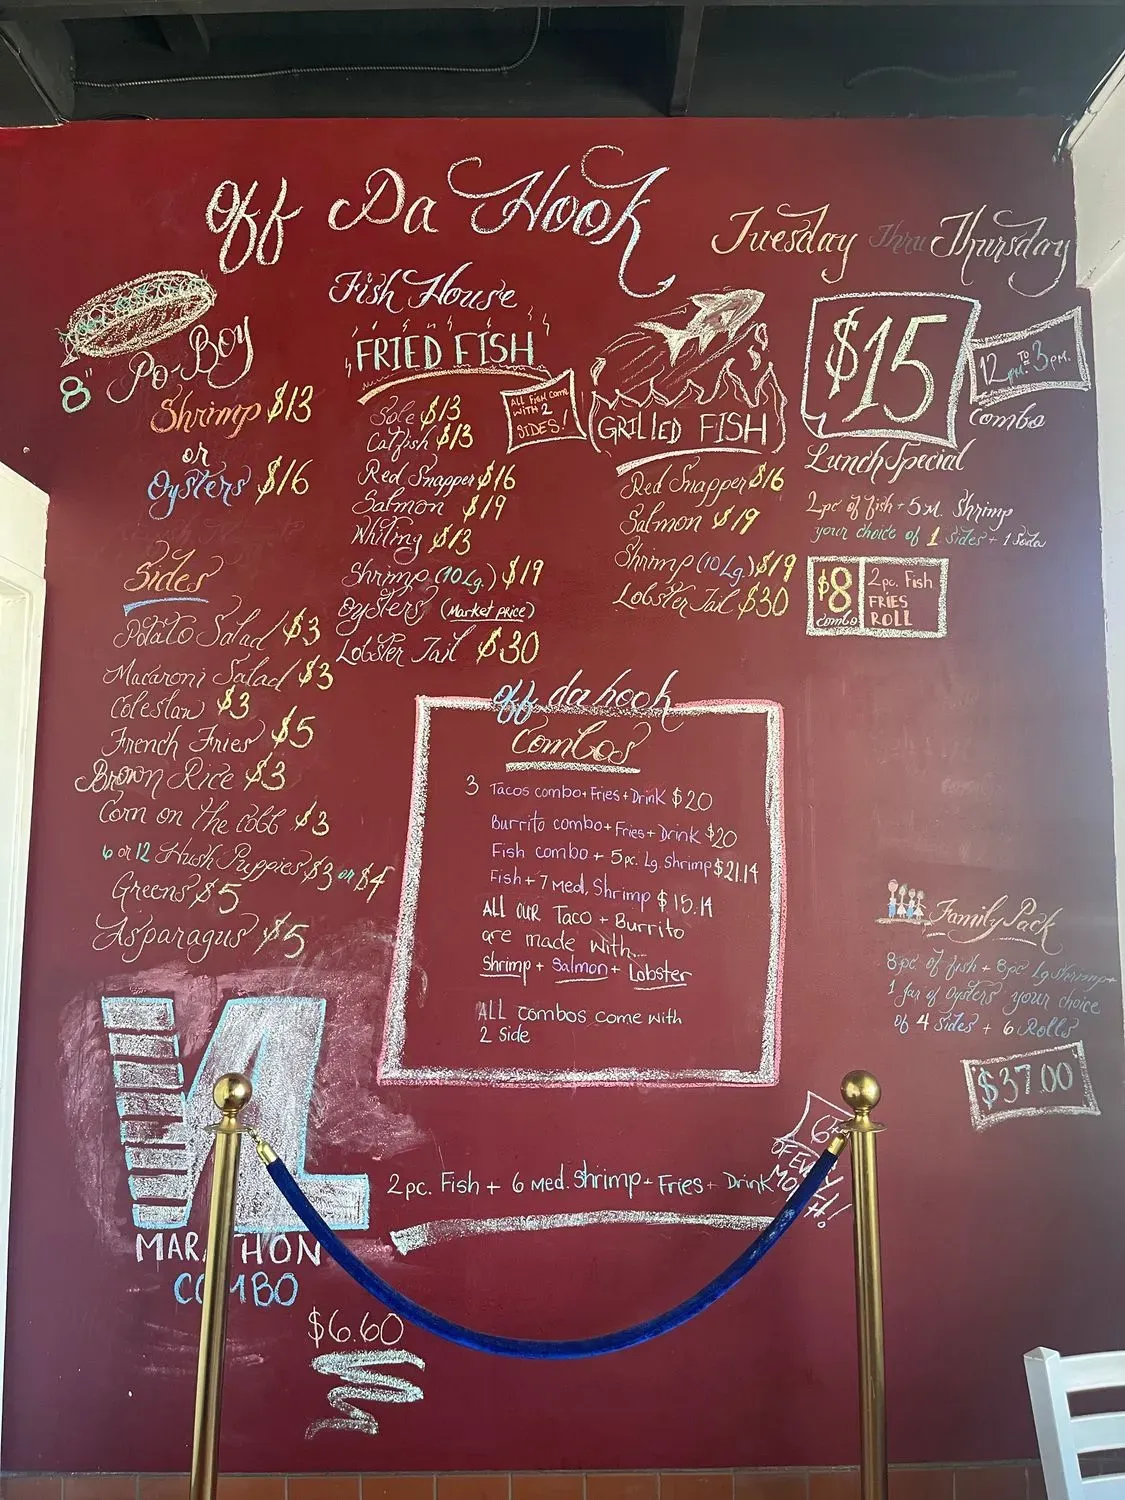 Off Da Hook
Fish House
Tuesday Thru Thursday
8" Po-Boy
Shrimp $13
or
Oysters $16
Sides
Potato Salad $3
Macaroni Salad $3
Coleslaw $3
French Fries $5
Brown Rice $3
Corn on the Cobb $3
6 or 12 Hush Puppies $3 or $4
Greens $5
Asparagus $5
FRIED FISH
ALL FISH COME
WITH 2
SIDES!
Sole $13
Catfish $13
Red Snapper $16
Salmon $19
Whiting $13
Shrimp (10 Lg.) $19
Oysters (Market price)
Lobster Tail $30
GRILLED FISH
Red Snapper $16
Salmon $19
Shrimp (10 Lg.) $19
Lobster Tail $30
$15
12 pm. TO 3 PM.
Combo
Lunch Special
2pc of fish + 5 M. Shrimp
your choice of 1 Sides + 1 Soda
$8
combo
2pc. Fish
FRIES
ROLL
off da hook
Combos
3 Tacos combo + Fries + Drink $20
Burrito combo + Fries + Drink $20
Fish combo + 5pc. Lg. Shrimp $21.14
Fish + 7 Med. Shrimp $15.14
ALL OUR Taco + Burrito
are made with...
Shrimp + Salmon + Lobster
ALL combos come with
2 Side
Family Pack
8pc of fish + 8pc Lg Shrimp +
1 Jar of Oysters your choice
of 4 Sides + 6 Rolls
$37.00
MARATHON
COMBO
2pc. Fish + 6 MED. Shrimp + Fries + Drink
$6.60